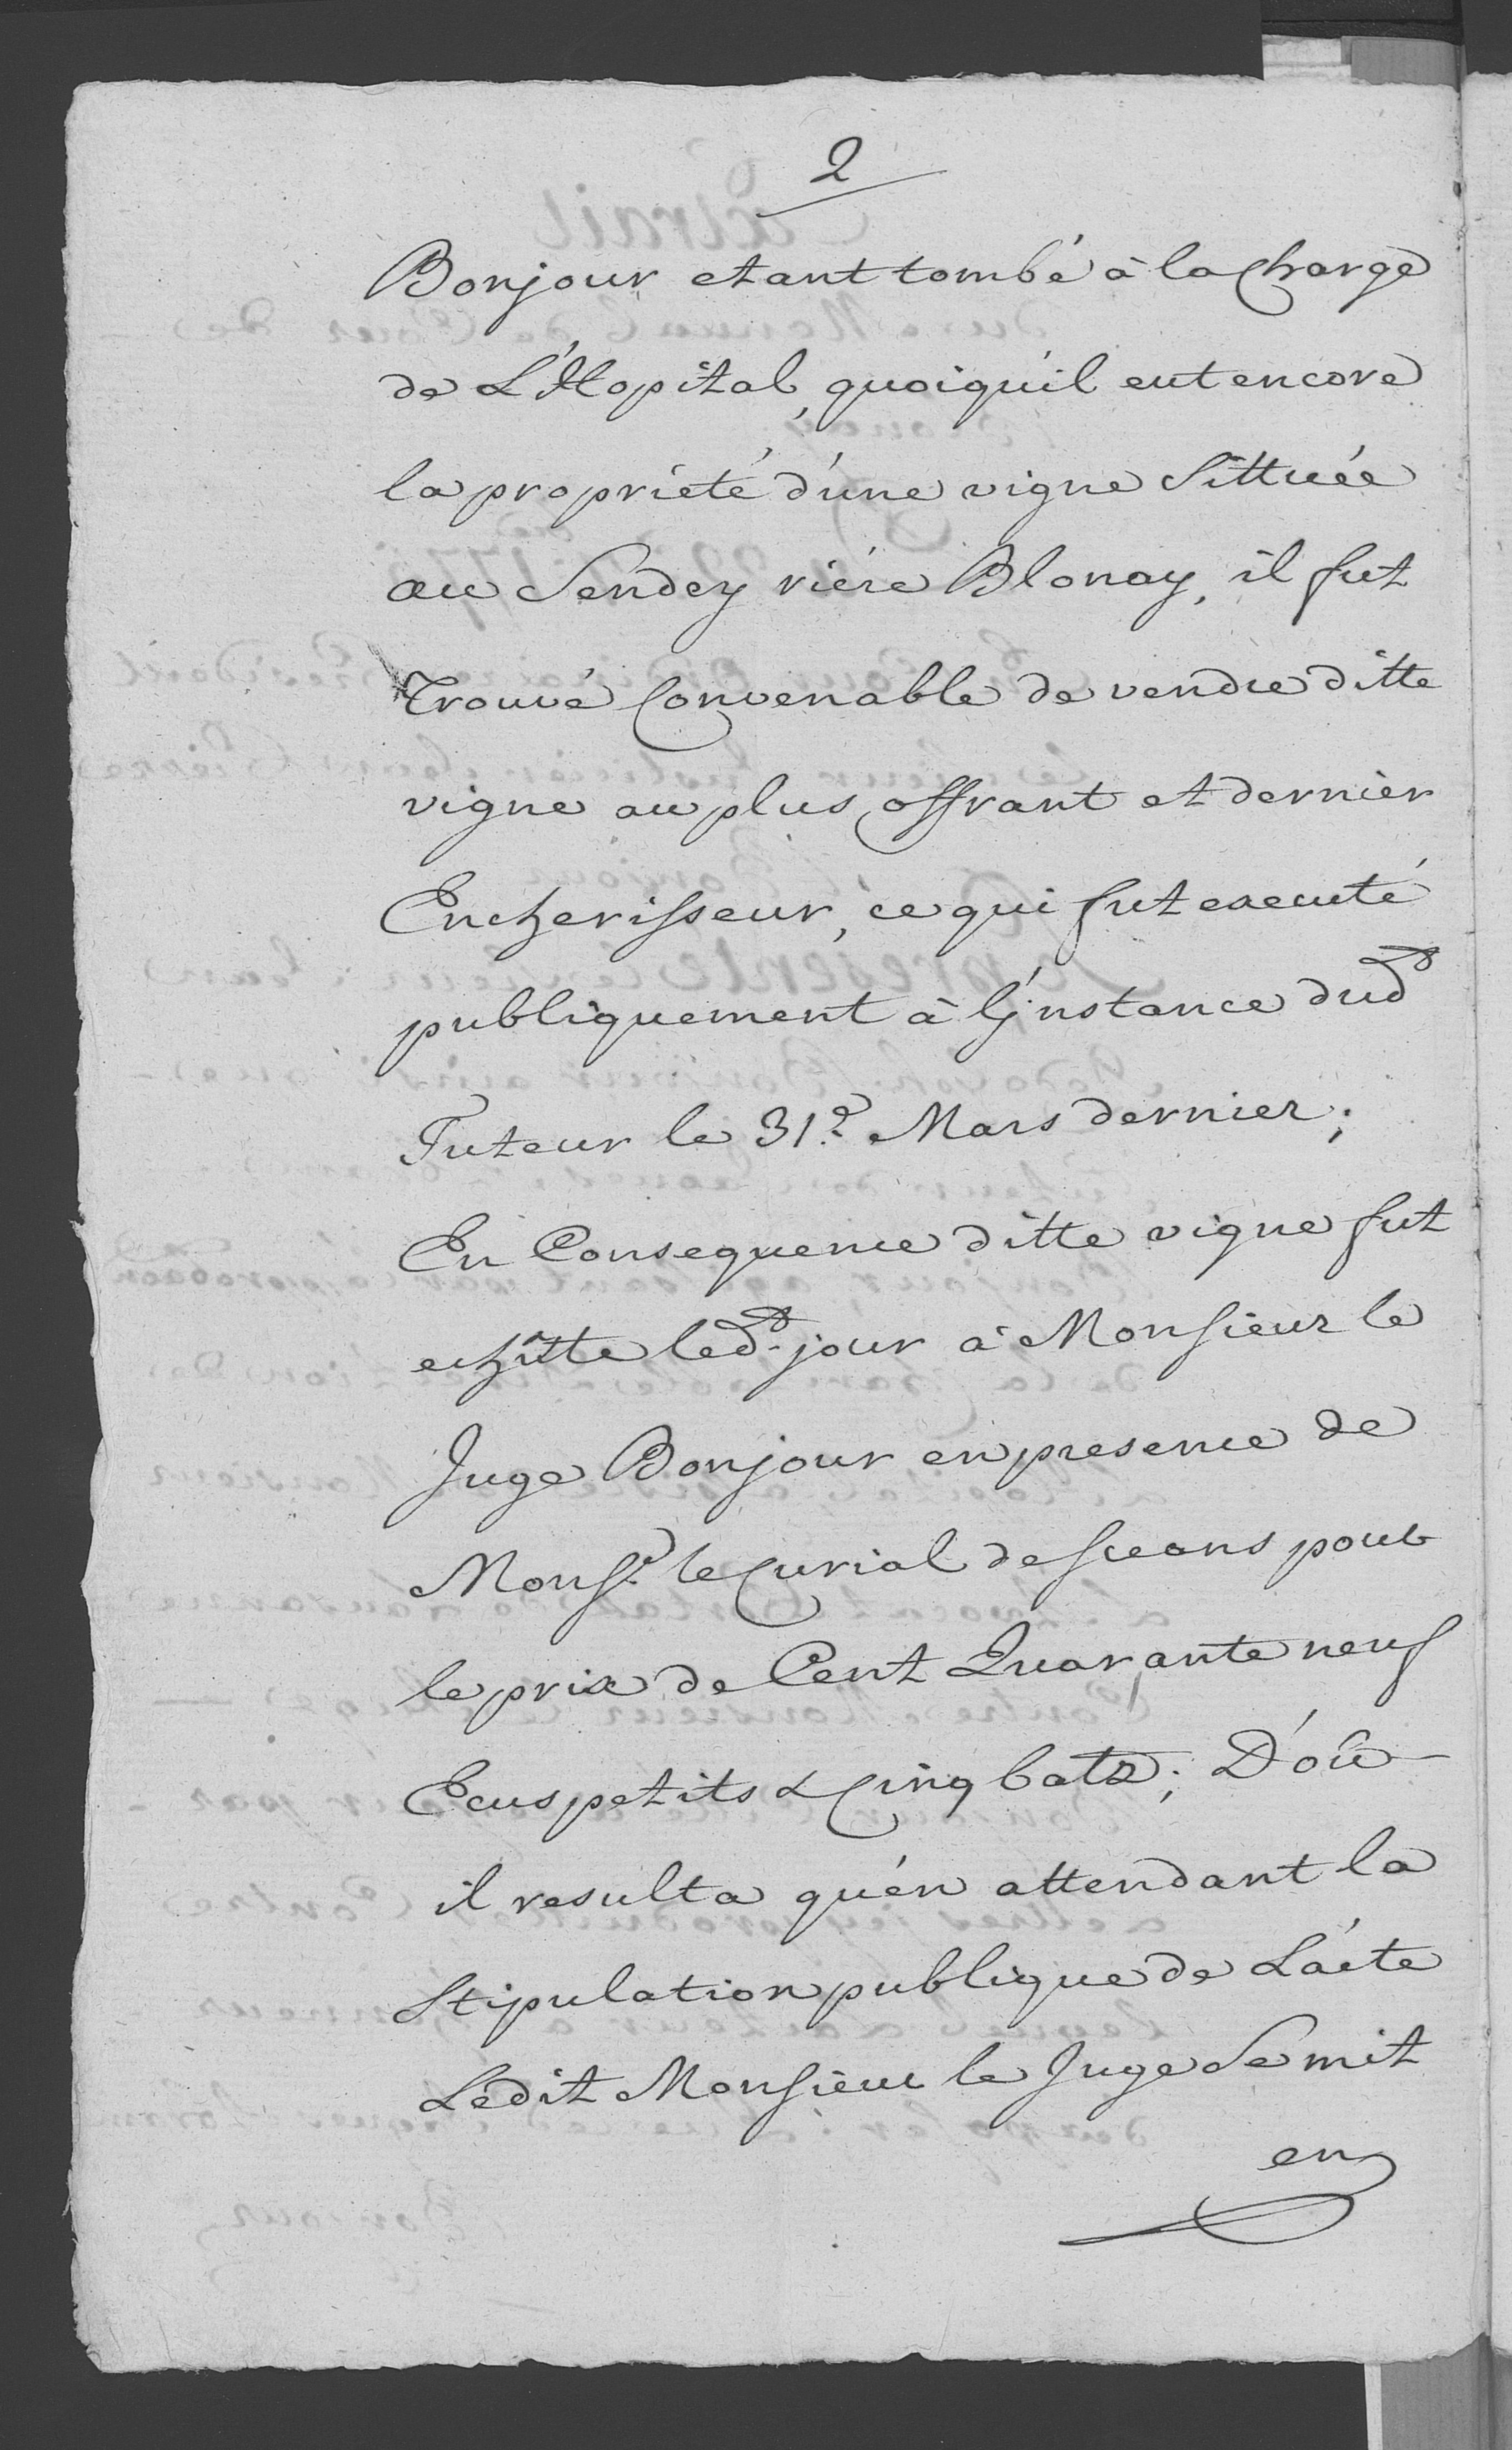 2
Bonjour etant tombé à la Charge
de L'Hopital, quoiqu'il eut encore
la propriété d'une vigne Sittuée
au Sendey riére Blonay, il fut
Trouvé Convenable de vendre ditte
vigne au plus offrant et dernier
Encherisseur, ce qui fut executé
publiquement à l'instance dud.
Tuteur le 31.e Mars dernier;
En Consequence ditte vigne fut
echûtte led. jour à Monsieur le
Juge Bonjour en presence de
Monsr. le Curial de ceans pour
le prix de Cent Quarante neuf
Ecus petits & Cinq batz; D'où
il resulta qu'en attendant la
Stipulation publique de L'acte
Ledit Monsieur le Juge Se mit
en